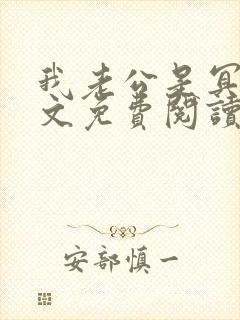 我老公是冥
文免費閱讀
安部慎一